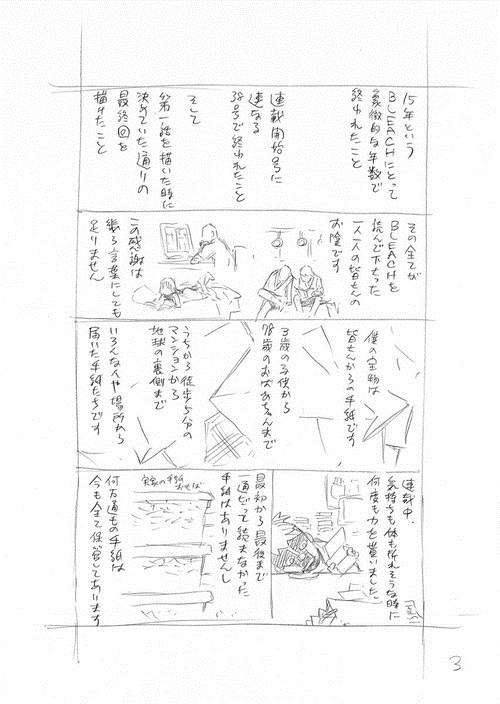 15年という
BLEACHにとって
象徴的な年数で
終われたこと
連載開始号に
連なる
38号で終われたこと
そして
第一話を描いた時に
決めていた通りの
最終回を
描けたこと
その全てが
BLEACHを
読んで下さった
一人一人の皆さんの
お陰です
この感謝は
どんな言葉にしても
足りません
僕の宝物は
皆さんからの手紙です
3歳の子供から
78歳のおばあちゃんまで
うちから徒歩5分の
マンションから
地球の裏側まで
いろんな人や場所から
届いた手紙たちです
連載中、
気持ちも体も折れそうな時に
何度も力を貰いました。
最初から最後まで
一通だって読まなかった
手紙はありませんし
何万通もの手紙は
今も全て保管してあります
3